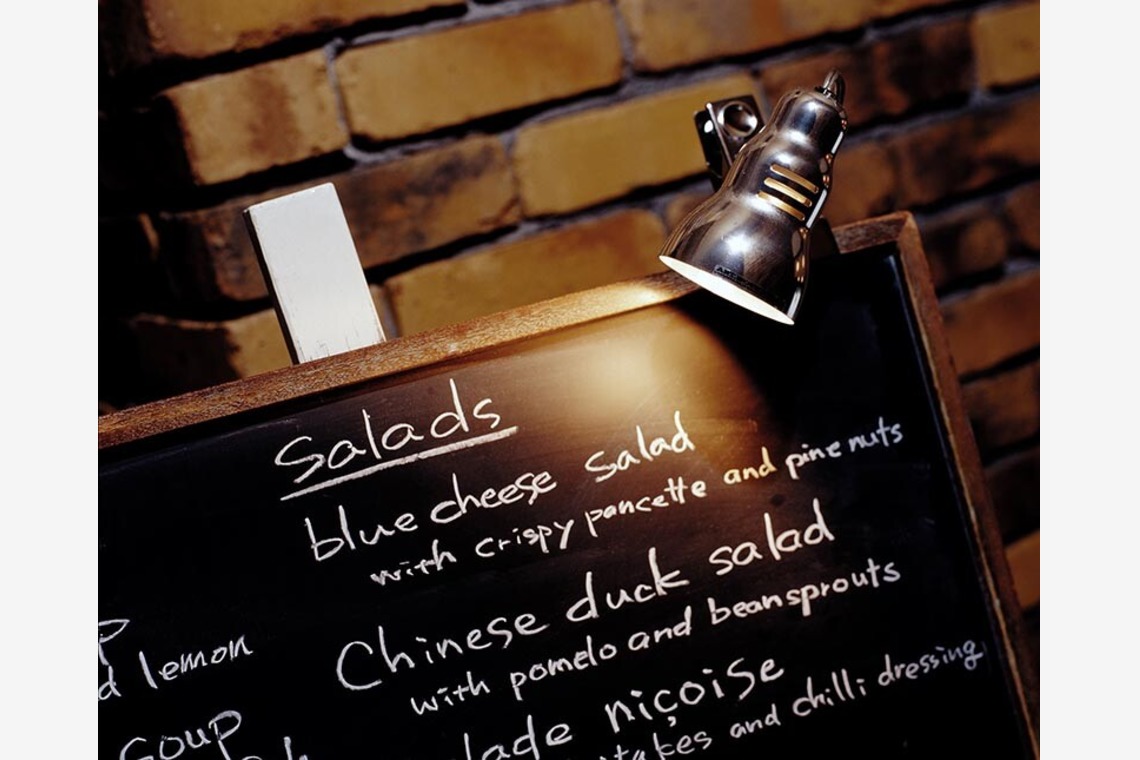 Salads
blue cheese salad
with crispy pancette and pine nuts
Chinese duck salad
with pomelo and beansprouts
niçoise
and chilli dressing
lemon
soup